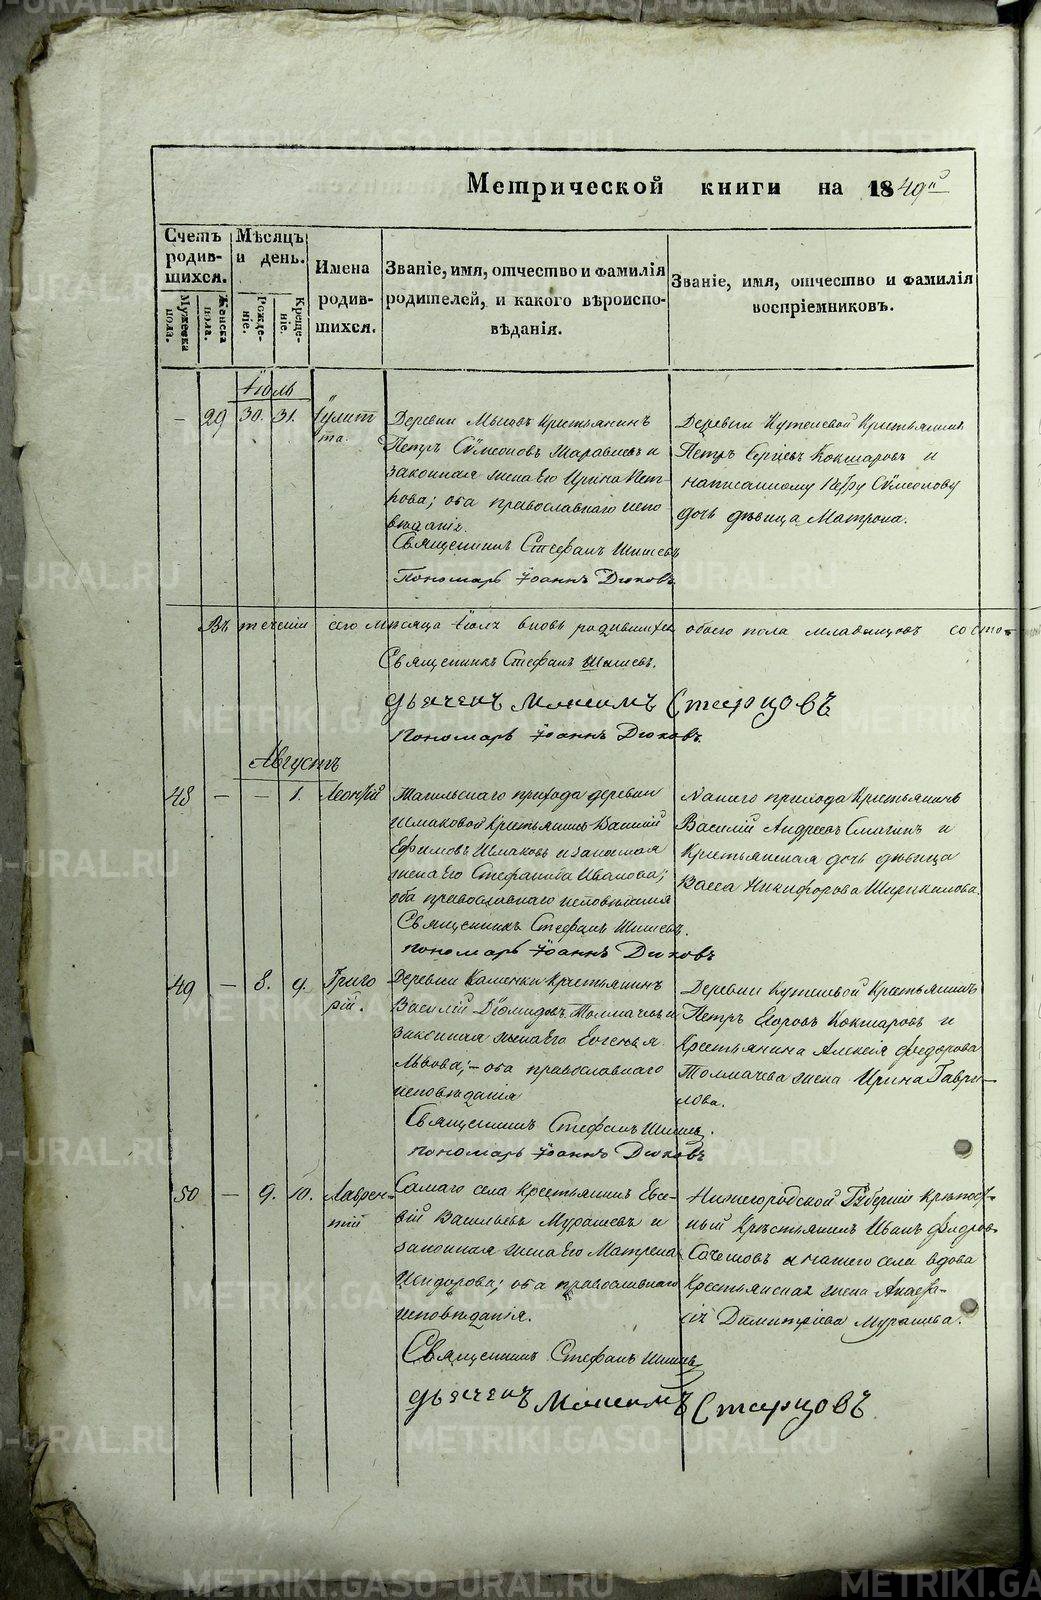 Метрической книги на 1849й
Счетъ родив- шихся.
Мѣсяцъ и день.
Имена родив- шихся.
Званіе, имя, отчество и фамилія родителей, и какого вѣроиспо- вѣданія.
Званіе, имя, отчество и фамилія воспріемниковъ.
Мужеска пола.
Женска пола.
Рожде- ніе.
Креще- ніе.
Іюль
— 29 30. 31. Іулит
та.
Деревни Крестьянинъ
Петръ Сѵмеоновъ и
законная жена его Ирина Пет-
рова; оба православнаго испо
вѣданія.
Священникъ Стефанъ Шишевъ
Пономарь Іоаннъ Дюковъ
Деревни Кутеневой Крестьянинъ
Петръ Сергіевъ Кокшаровъ и
написанному Петру Сѵмеонову
дочь дѣвица Матрона.
Въ теченіи сего мѣсяца Іюля вновь родившихся обоего пола младенцовъ состо-
Священникъ Стефанъ Шишевъ.
дьячекъ Максимъ Старцовъ
Пономарь Іоаннъ Дюковъ.
Августъ
48 — — 1. Леонтій
Тагильскаго прихода деревни
Шмаковой Крестьянинъ Василій
Ефимовъ Шмаковъ и законная
жена его Стефанида Иванова;
оба православнаго исповѣданія
Священникъ Стефанъ Шишевъ.
пономарь Іоаннъ Дюковъ
Нашего прихода Крестьянинъ
Василій Андреевъ и
Крестьянская дочь дѣвица
Васса Никифорова Ширинкинова.
49 — 8. 9. Григо
рій.
Деревни Каменки Крестьянинъ
Василій Діомидовъ Толмачевъ и
законная жена его Евгенья
Львова; — оба православнаго
исповѣданія
Священникъ Стефанъ Шишевъ.
пономарь Іоаннъ Дюковъ
Деревни Кутеневой Крестьянинъ
Петръ Егоровъ Кокшаровъ и
Крестьянина Алексія Федорова
Толмачева жена Ирина Гаври-
лова.
50 — 9. 10. Лаврен-
тій
Самаго села крестьянинъ Евсе-
вій Васильевъ Мурашевъ и
законная жена его Матрена
Исидорова; оба православнаго
исповѣданія.
Священникъ Стефанъ Шишевъ
дьячекъ Максимъ Старцовъ
Нижегородской Губерніи крѣпост-
ный Крестьянинъ Иванъ Федоровъ
и нашего села вдова
Крестьянская жена Анаста-
сія Димитріева Мурашева.
METRIKI.GASO-URAL.RU